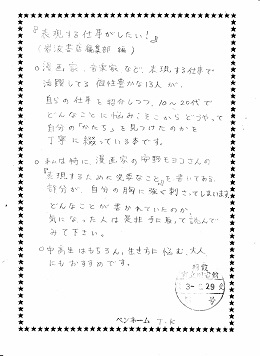 『表現する仕事がしたい!』
(岩波書店編集部 編)
○漫画家、音楽家など、表現する仕事で
活躍してる個性豊かな13人が、
自らの仕事を紹介しつつ、10〜20代で
どんなことに悩み、そこからどうやって
自分の「かたち」を見つけたのかを
丁寧に綴っている本です。
○私は特に、漫画家の安野モヨコさんの
『表現するために必要なこと』を書いてある
部分が、自分の胸に強く刺さってしまいます
どんなことが書かれていたのか、
気になった人は是非手に取って読んで
みて下さい。
○中高生はもちろん、生き方に悩む、大人
にもおすすめです。
号
ペンネーム J.K